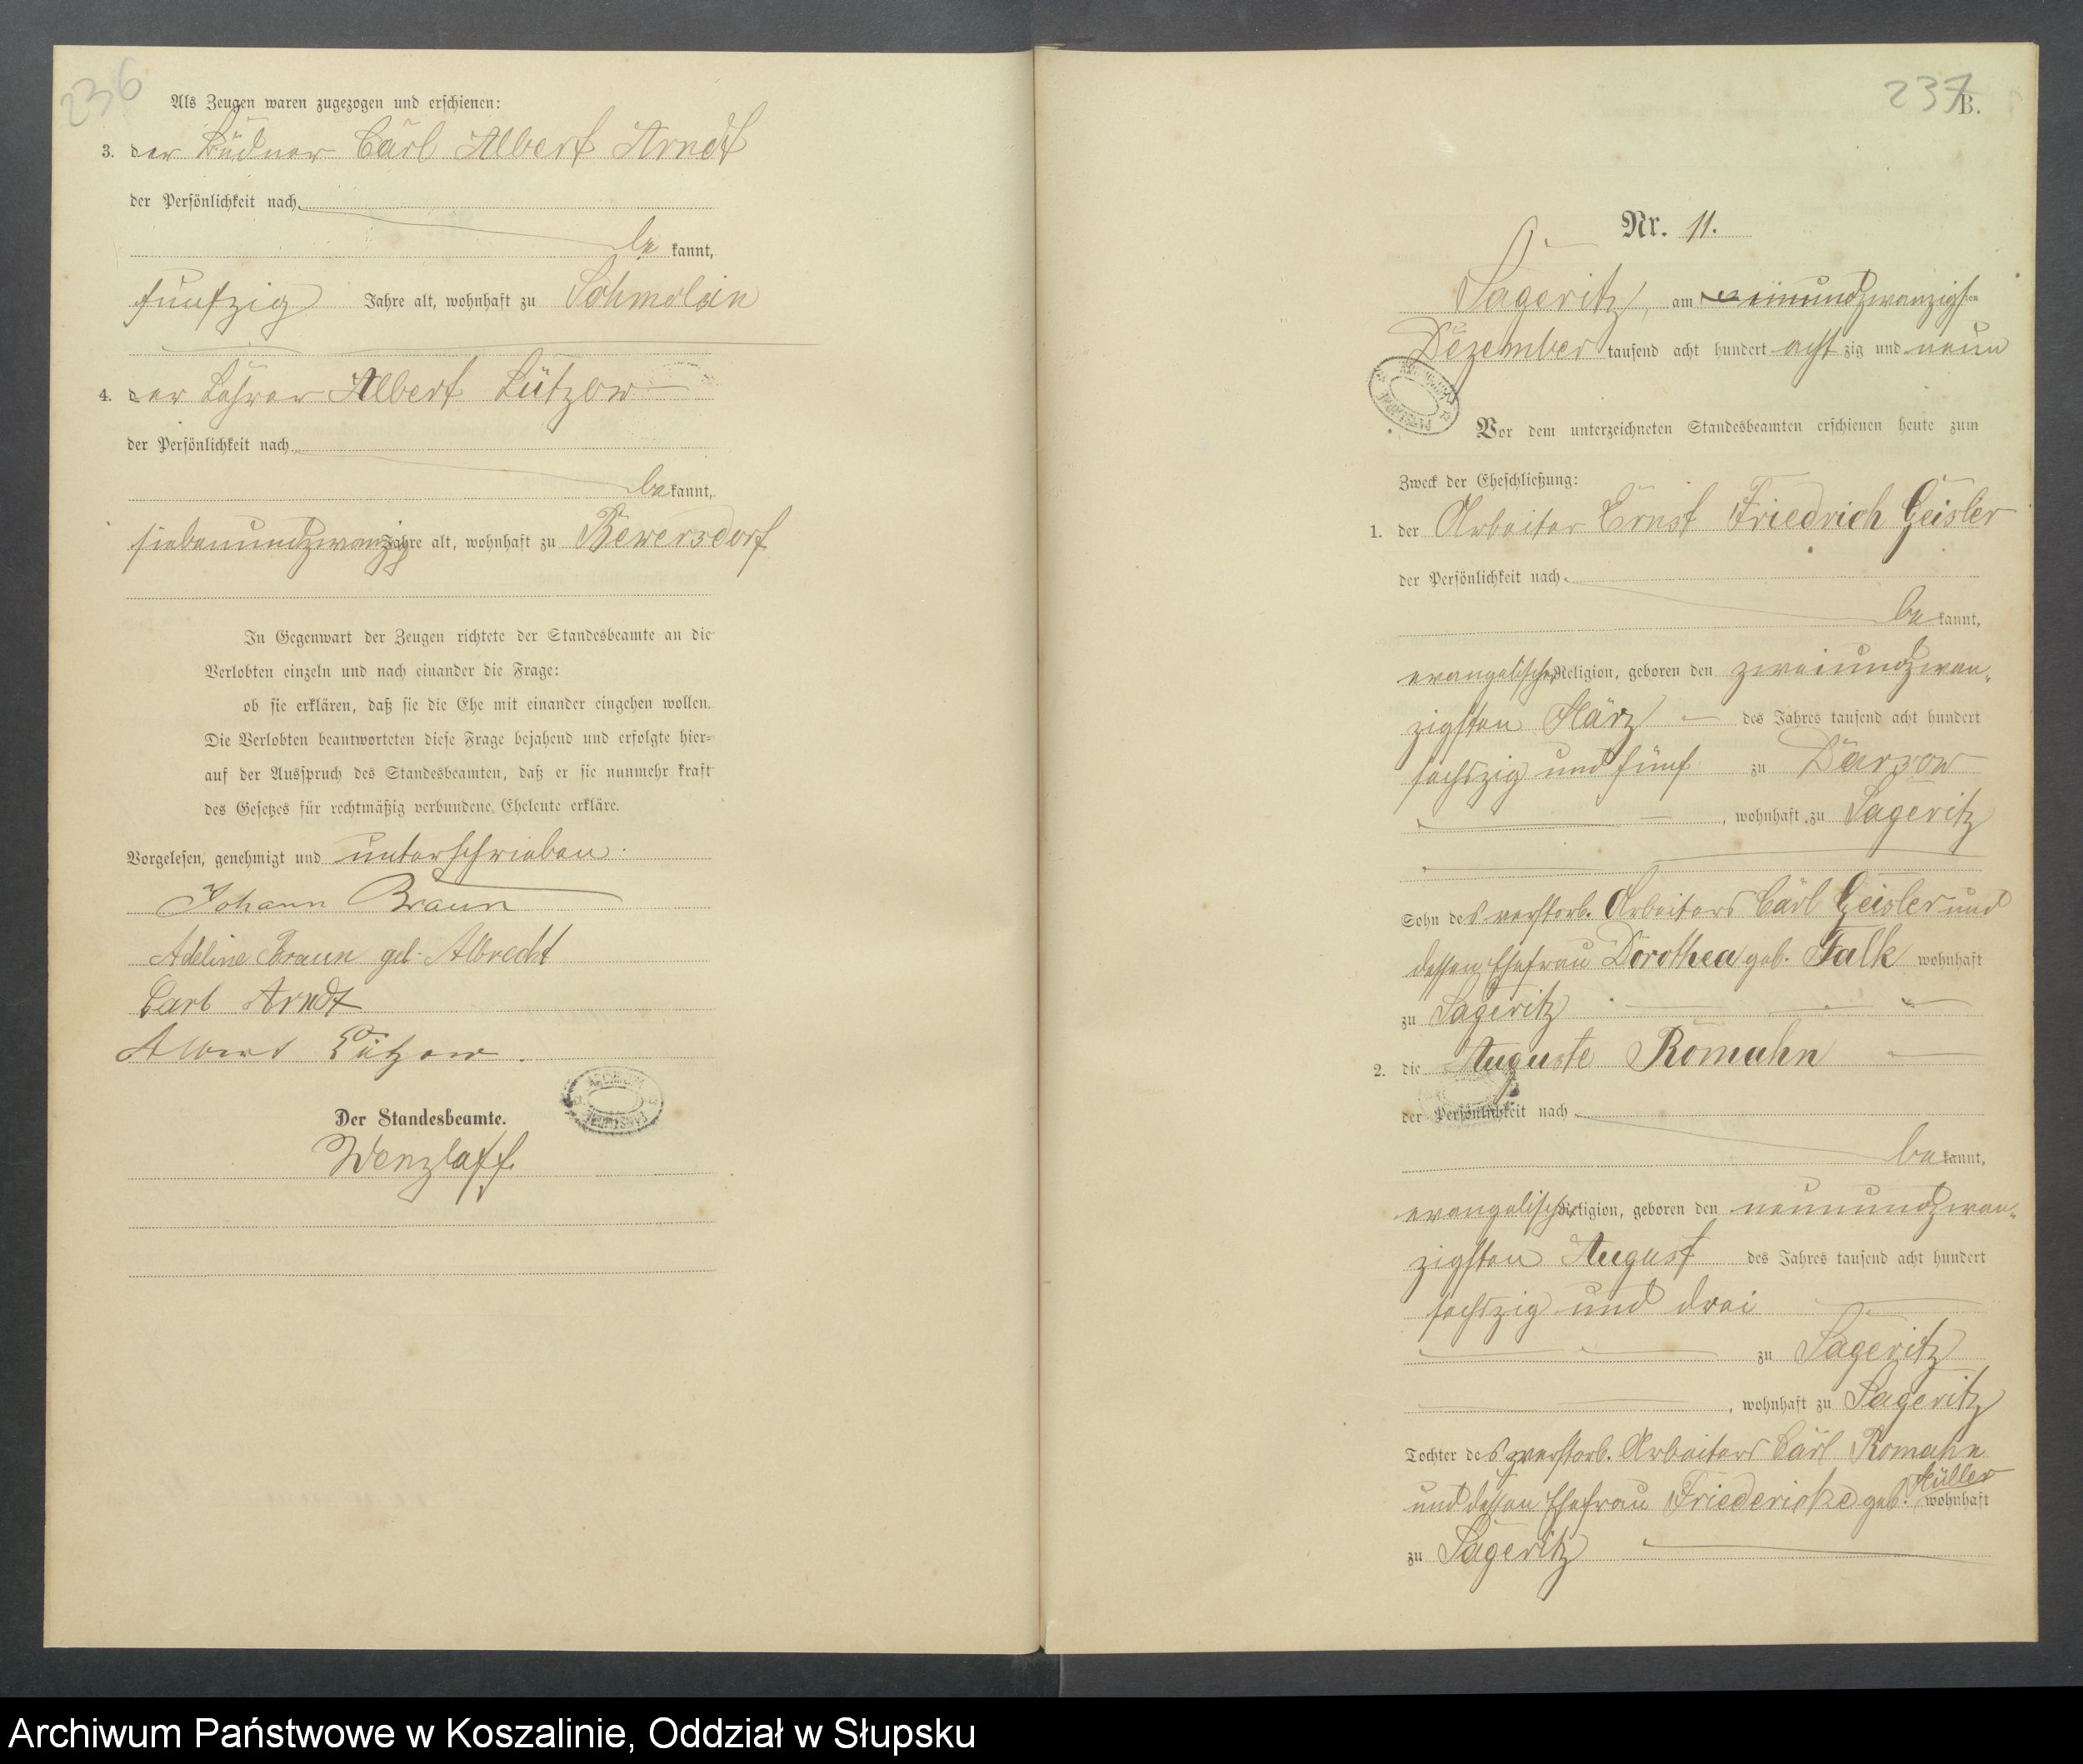 236
Als Zeugen waren zugezogen und erschienen:
3. der Büdner Carl Albert Arndt
der Persönlichkeit nach
be kannt,
fünfzig Jahre alt, wohnhaft zu Schmolsin
4. der Lehrer Albert Lützow
der Persönlichkeit nach
be kannt,
siebenundzwanzig Jahre alt, wohnhaft zu Bewersdorf
In Gegenwart der Zeugen richtete der Standesbeamte an die
Verlobten einzeln und nach einander die Frage:
ob sie erklären, daß sie die Ehe mit einander eingehen wollen.
Die Verlobten beantworteten diese Frage bejahend und erfolgte hier=
auf der Ausspruch des Standesbeamten, daß er sie nunmehr kraft
des Gesetzes für rechtmäßig verbundene Eheleute erkläre.
Vorgelesen, genehmigt und unterschrieben.
Johann Braun
Adeline Braun geb. Albrecht
Carl Arndt
Albert Lützow.
Der Standesbeamte.
Wenzlaff.
237
B.
Nr. 11.
Sageritz, am einundzwanzigsten
Dezember tausend acht hundert acht zig und neun
Vor dem unterzeichneten Standesbeamten erschienen heute zum
Zweck der Eheschließung:
1. der Arbeiter Ernst Friedrich Geisler
der Persönlichkeit nach
be kannt,
evangelischer Religion, geboren den zweiundzwan„
zigsten März des Jahres tausend acht hundert
sechszig und fünf zu Darsow
, wohnhaft zu Sageritz
Sohn des verstorb. Arbeiters Carl Geisler und
dessen Ehefrau Dorothea geb. Falk wohnhaft
zu Sageritz
2. die Auguste Romahn
der Persönlichkeit nach
be kannt,
evangelischer Religion, geboren den neunundzwan„
zigsten August des Jahres tausend acht hundert
sechszig und drei
zu Sageritz
, wohnhaft zu Sageritz
Tochter des verstorb. Arbeiters Carl Romahn
und dessen Ehefrau Friedericke geb. Müller wohnhaft
zu Sageritz
Archiwum Państwowe w Koszalinie, Oddział w Słupsku